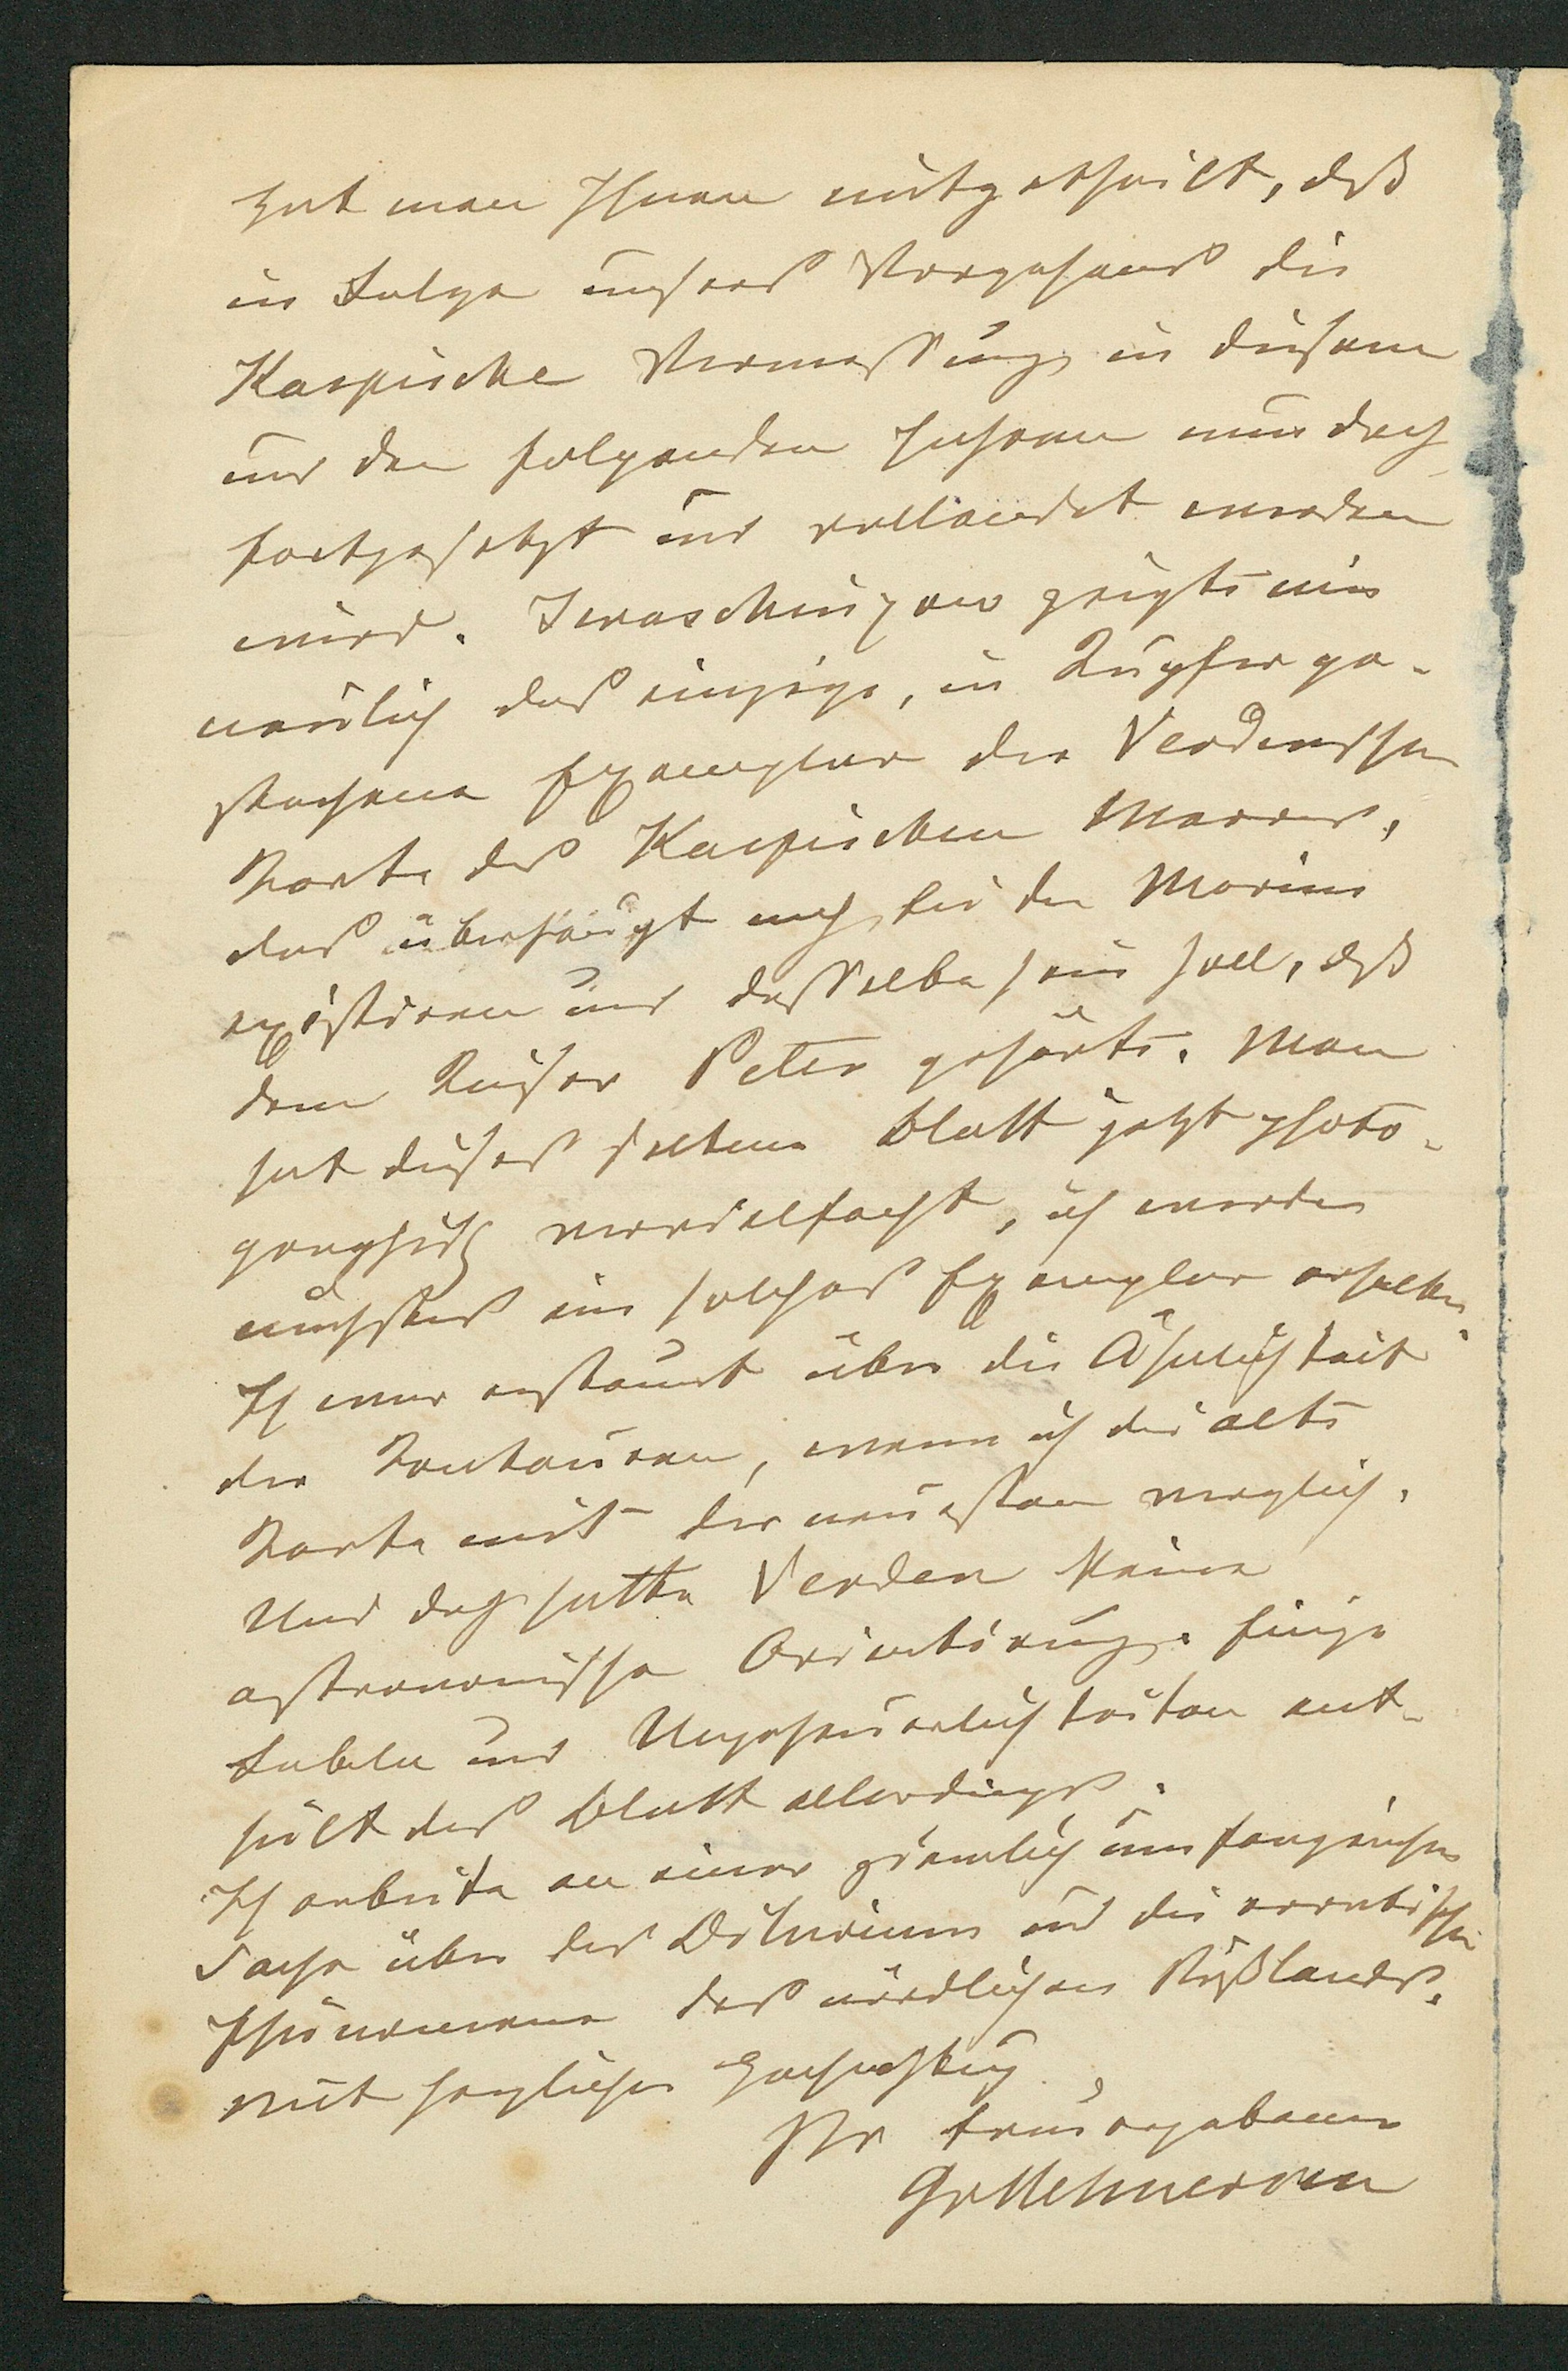 hat man Ihnen mitgetheilt, daß
in Folge unseres Vorgehens die
Kaspische Vermessung in diesem
und den folgenden Jahren nun doch
fortgesetzt und vollendet werden
wird. Iwaschinzow zeigte mir
neulich das einzige, in Kupfer ge-
stochene Exemplar der Verdenschen
Karte des Kaspischen Meeres,
das überhaupt noch bei der Marine
existiren und dasselbe sein soll, daß
dem Kaiser Peter gehörte. Man
hat dieses seltene Blatt jetzt photo-
graphisch vervielfacht, ich werde
nächstens ein solches Exemplar erhalten.
Ich war erstaunt über die Ähnlichkeit
der Kontouren, wenn ich die alte
Karte mit der neuesten verglich.
Und doch hatte Verden keine
astronomische Orientirung. Einige
Fabeln und Ungeheuerlichkeiten ent-
hält das Blatt allerdings.
Ich arbeite an einer ziemlich umfangreichen
Sache über das Diluvium und die erratischen
Phänomene des nördlichen Rußlands.
Mit herzlicher Hochachtung
Ihr treu ergebener
GvHelmersen